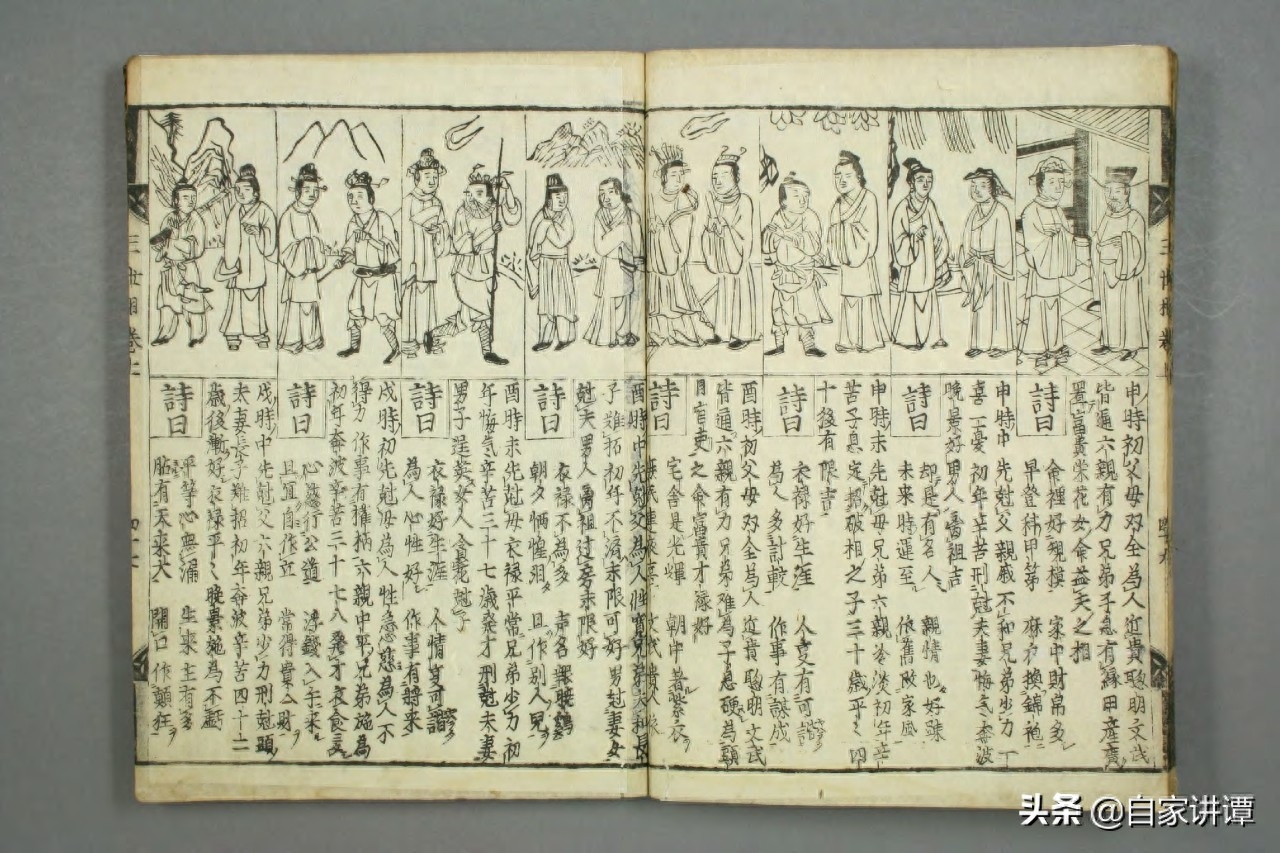 申時初父母双全為人近貴聡明文武
皆通六親有力兄弟手息有緣田産廣
置富貴栄花女命益夫之相
詩曰
命裡好規模 家中財帛多
早登科甲第 麻衣換錦袍
申時中先尅父親戚不和兄弟少力
喜一憂初年辛苦刑尅夫妻悔気奔波
晩景好男人當祖吉
詩曰
却是有名人 親情也好踈
未来時運至 依舊敗家風
申時末先尅母兄弟六親冷淡初年辛
苦子息定招破相之子三十歳平々四
十後有限吉
詩曰
衣禄好生涯 人変有可諧
為人多計較 作事有謀成
酉時初父母双全為人近貴聡明文武
皆通六親有力兄弟难為子息硬為顕
之命富貴才祿好
詩曰
宅舍是光輝 朝中着紫衣
酉時中先尅父為人性
子難招初年不済末限可好男尅妻女
尅夫男人離祖过房末限好
詩曰
衣禄不為多 声名
朝夕恓惶淚 且作別人兒
酉時末先尅母衣禄平常兄弟少力初
年悔気辛苦三十七歳発才刑尅夫妻
男子逞英女人含花尅子
詩曰
衣禄好生涯 人情変可諧
為人心性好 作事有将来
戌時初先尅母為人性急慈為人不
得力作事有權柄六親中平兄弟
初年奔波辛苦三十七八発才衣食
詩曰
心慈行公道 浄錢入手来
且宜自作立 常得貴人財
戌時中先尅父六親兄弟少力刑尅頭
夫妻長子難招初年奔波辛苦四十二
歳後漸好衣禄平々晩景施為不虧
詩曰
平等心無漏 生来主有
胎有天来大 開口作顛狂
三世相卷上
头条 @自家讲谭